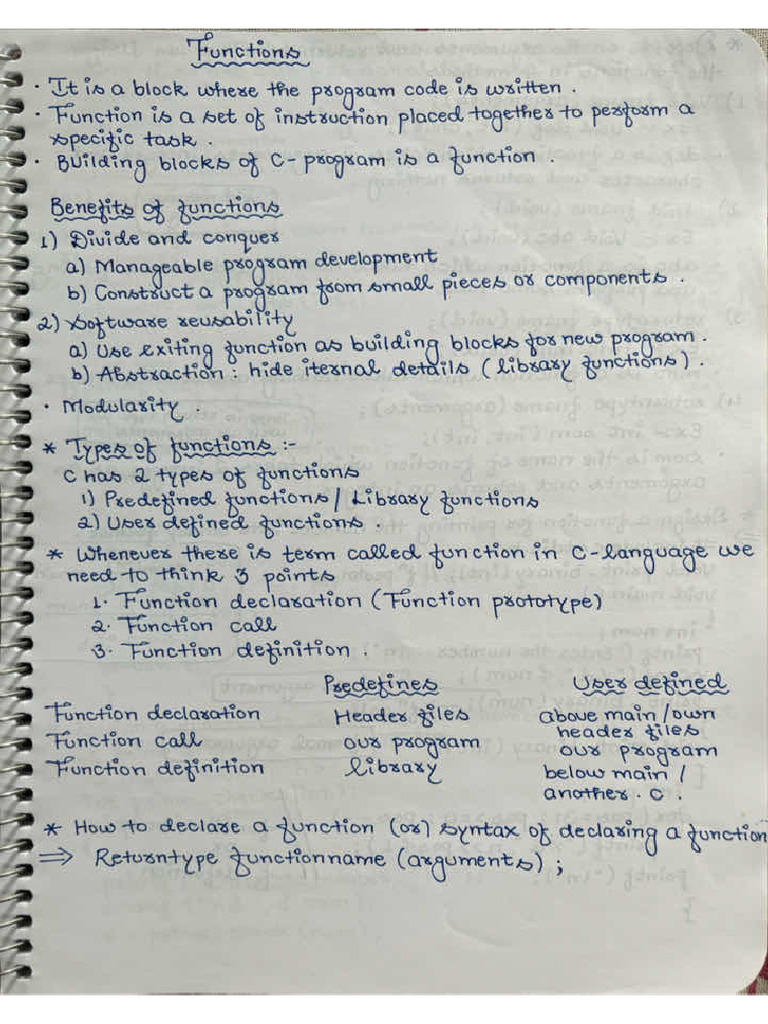 Functions
· It is a block where the program code is written .
· Function is a set of instruction placed together to perform a
specific task .
· Building blocks of C - program is a function .
Benefits of functions
1) Divide and conquer
a) Manageable program development
b) Construct a program from small pieces or components .
2) Software reusability
a) Use exiting function as building blocks for new program .
b) Abstraction : hide iternal details ( library functions ) .
· Modularity .
* Types of functions :-
C has 2 types of functions
1) Predefined functions / Library functions
2) User defined functions .
* Whenever there is term called function in C-language we
need to think 3 points
1. Function declaration ( Function prototype)
2. Function call
3. Function definition .
Predefines User defined
Function declaration Header files above main / own
header files
Function call our program our program
Function definition library below main /
another . C .
* How to declare a function (or) syntax of declaring a function
⇒ Returntype functionname (arguments) ;